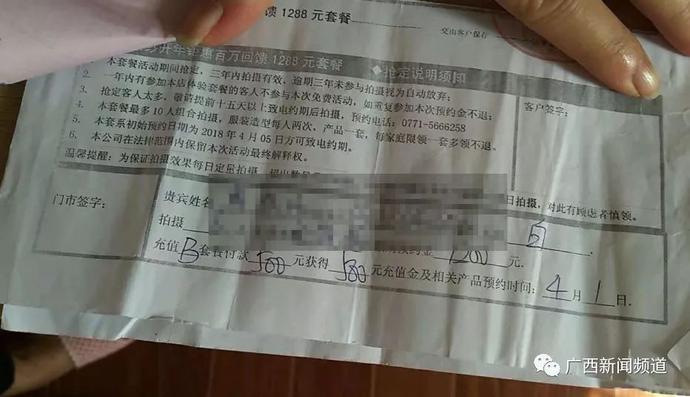 馈 1288 元套餐
交由客户保存
开年钜惠百万回馈 1288 元套餐
◆抢定说明须知
本套餐活动期间抢定，三年内拍摄有效，逾期三年未参与拍摄视为自动放弃；
2. 一年内有参加本店体验套餐的客人不参与本次免费活动，如重复参加本次预约金不退；
3. 抢定客人太多，敬请提前十五天以上致电约期后拍摄，预约电话：0771-5666258
4. 本套餐最多 10 人组合拍摄，服装造型每人两次，产品一套，每家庭限领一套多领不退。
5. 本套系初始预约日期为 2018 年 4 月 05 日方可致电约期。
6. 本公司在法律范围内保留本次活动最终解释权。
温馨提醒：为保证拍摄效果每日定量拍摄，
日拍摄，对此有顾虑者慎领。
客户签字：
门市签字：
贵宾姓名
拍摄
预约金 1200 元.
充值 B 套餐付款 500 元获得 500 元充值金及相关产品预约时间：4 月 1 日.
广西新闻频道